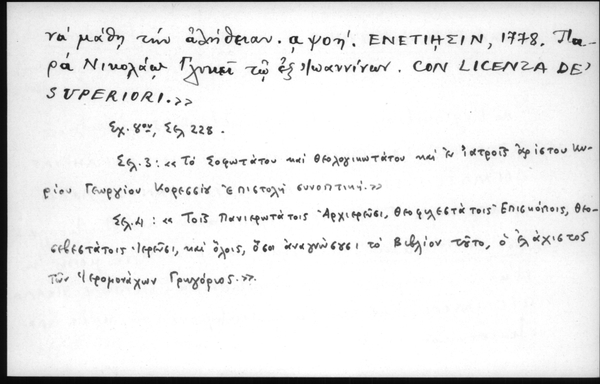 νά μάθῃ τήν ἀλήθειαν. α ψοη'. ΕΝΕΤΙΗΣΙΝ, 1778. Πα-
ρά Νικολάῳ Γλυκεῖ τῷ ἐξ Ἰωαννίνων. CON LICENZA DE'
SUPERIORI.»
Σχ. 8ον, Σελ. 228.
Σελ. 3: «Τοῦ Σοφωτάτου καί θεολογικωτάτου καί ἐν ἰατροῖς ἀρίστου Κυ-
ρίου Γεωργίου Κορεσσίου Ἐπιστολή συνοπτική.»
Σελ. 4: «Τοῖς Πανιερωτάτοις Ἀρχιερεῦσι, Θεοφιλεστάτοις Ἐπισκόποις, Θεο-
σεβεστάτοις Ἱερεῦσι, καί ὅλοις, ὅσοι ἀναγνώσουσι τό Βιβλίον τοῦτο, ὁ ἐλάχιστος
τῶν Ἱερομονάχων Γρηγόριος.».